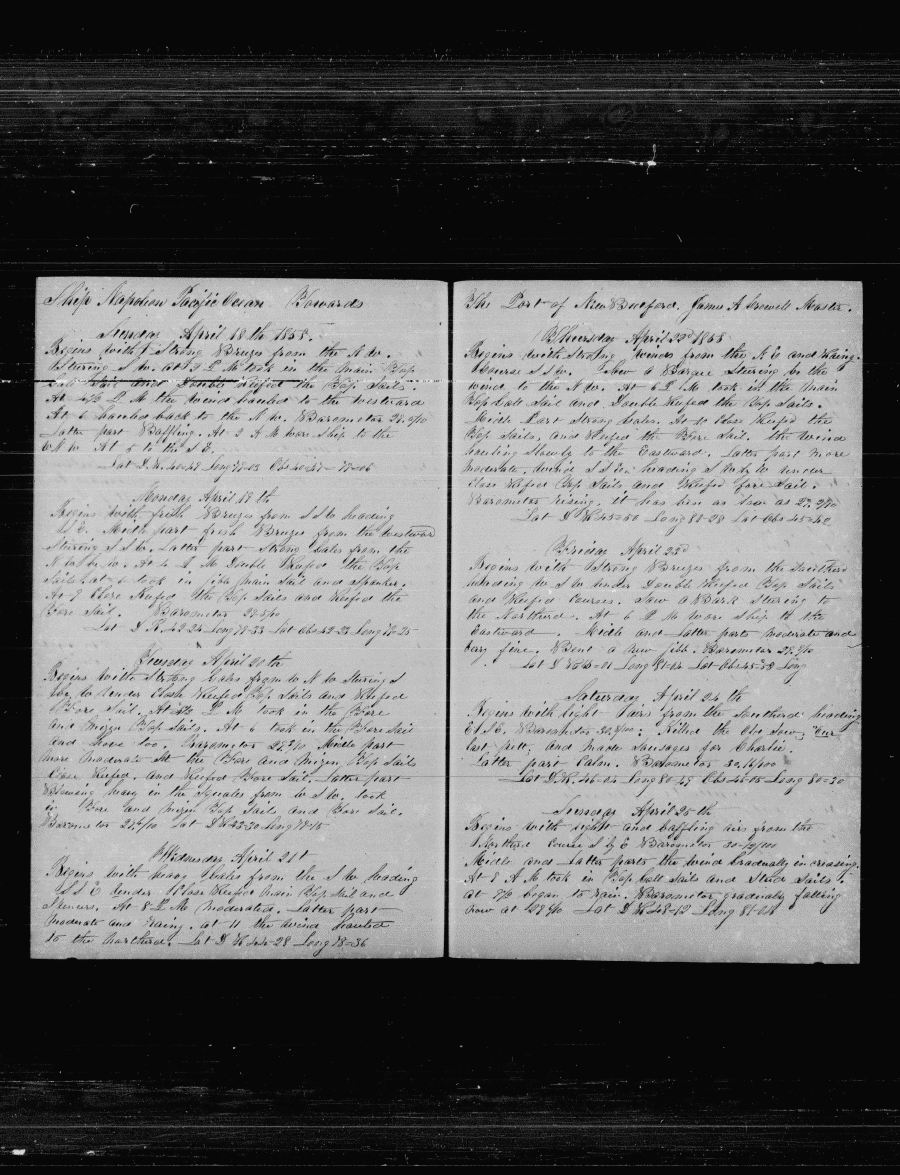 Ship Napoleon Pacific Ocean Towards
Sunday April 18th 1858.
Begins with Strong Breezes from the N W.
Sturing S W. at 2 P M took in the Main Top
and Double Reefed the Top Sails.
At P M the wind hauled to the westward
At 6 hauled back to the N W. Barometer
Latter part Baffling. At 2 A M wore Ship to the
N W At 5 to the S E.
Lat D R. 40-47 Long
Monday April 19th
Begins with fresh Breezes from S S W heading
S E. Midle part fresh Breezes from the westward
Sturing S S W. Latter part Strong Gales from the
N W by W. At 4 A M Double Reefed the Top
Sails at took in jibb Main Sail and Spanker.
At 8 Close Reefed the Top Sails and Reefed the
Fore Sail. Barometer
Lat D R. 42-24 Long 78-33 Lat Obs 42-23 Long 78-25
Tuesday April 20th
Begins with Strong Gales from W N W Sturing S
by W under Close Reefed Top Sails and Reefed
Fore Sail. At P M took in the Fore
and Mizen Top Sails. At 6 took in the Fore Sail
and hove too. Barometer Midle part
more moderate Set the Fore and Mizen Top Sails
Close Reefed. and Reefed Fore Sail. Latter part
Blowing heavy in the Squales from W S W. took
in Fore and Mizen Top Sails and Fore Sail.
Barometer Lat D R 43-30 Long 78-15
Wednesday April 21st
Begins with heavy Gales from the S W heading
S S E under Close Reefed Main Top Sail and
Spencer. At 8 P M moderated. Latter part
moderate and Rainy. at 11 the wind hauled
to the northerd. Lat D R 44-28 Long 78-36
The Port of New Bedford. James A Crowell Master.
Thursday April 22nd 1858
Begins with Strong winds from the N E and Rainy.
Course S S W. Saw a Barque Sturing by the
wind to the N W. At 6 P M took in the Main
Top Gall Sail and Double Reefed the Top Sails.
Midle Part Strong Gales. At 10 Close Reefed the
Top Sails, and Reefed the Fore Sail. the wind
hauling Slowly to the Eastward. Latter part more
moderate. wind S S E. heading S W by W under
Close Reefed Top Sails and Reefed fore Sail.
Barometer rising. it has ben as low as
Lat D R 45-50 Long 80-28 Lat Obs 45-40
Friday April 23d
Begins with Strong Breezes from the Southerd
heading W S W under Double Reefed Top Sails
and Reefed Courses. Saw a Bark Sturing to
the Northerd. At 6 P M wore Ship to the
Eastward. Midle and Latter parts moderate and
very fine. Bent a new jibb. Barometer
Lat D R 45-01 Long 81-14 Lat Obs 45-32 Long
Saturday April 24th
Begins with light airs from the Southerd heading
E S E. Barometer Killed the Obe Sow, Our
last pett, and made Sausages for Charlie.
Latter part Calm. Barometer
Lat D R. Long Obs 45-05 Long 80-30
Sunday April 25th
Begins with light and baffling airs from the
Northerd Course S by E Barometer
Midle and Latter parts the wind Gradually increasing.
At 8 A M took in Top Gall Sails and Stud Sails.
at began to rain. Barometer gradually falling
now at Lat D R 48-12 Long